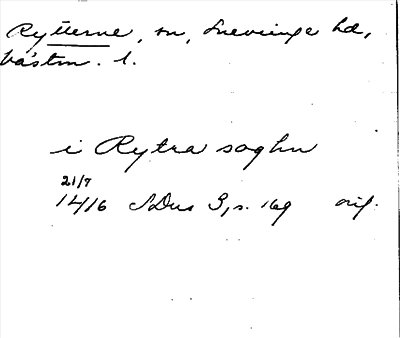 Rytterne, sn, Snevringe hd,
Västm. l.
i Rytra soghn
21/7
1416 SDns 3, s. 169 orig.